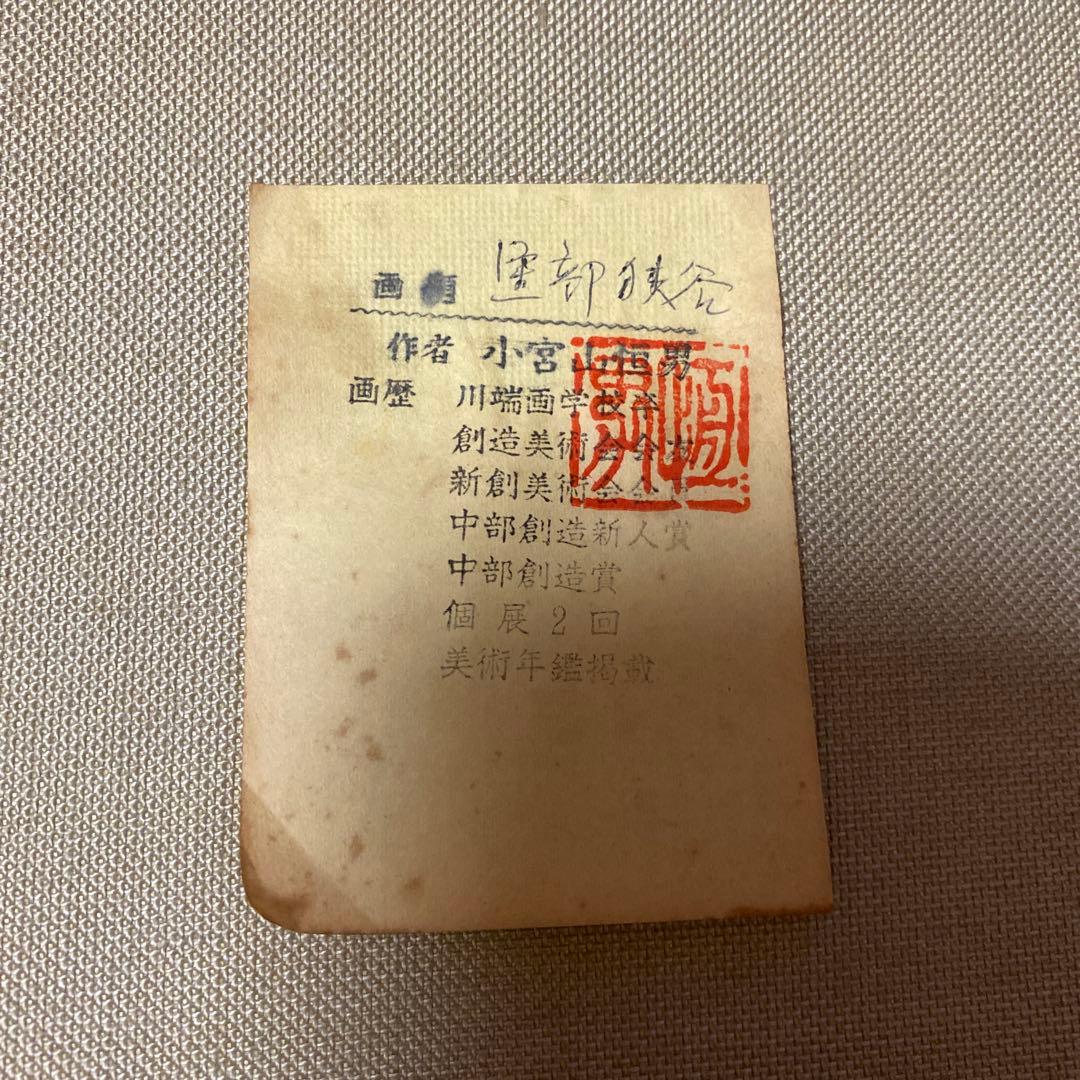 画題 黒部狭谷
作者 小宮山恒男
画歴 川端画学校卒
創造美術会会友
新創美術会会員
中部創造新人賞
中部創造賞
個展2回
美術年鑑掲載
恒男